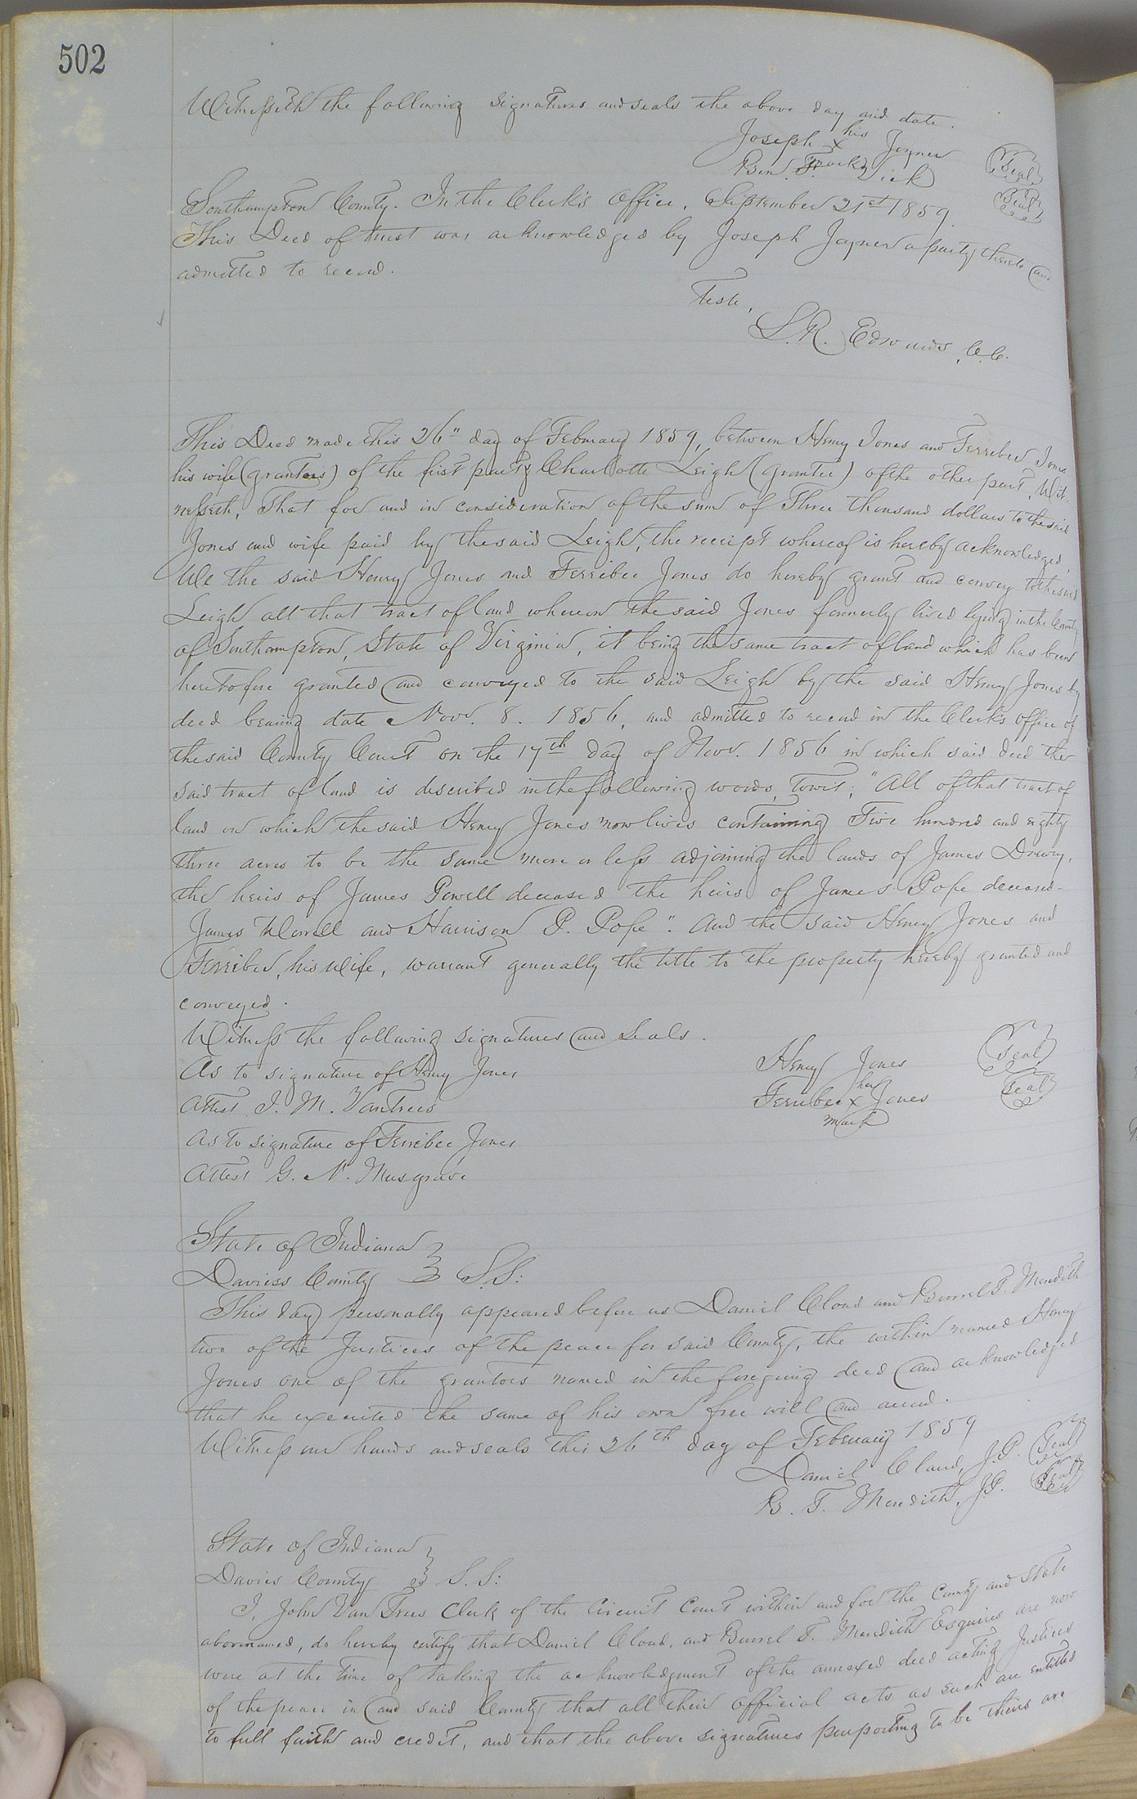 502
Witnesseth the following signatures and seals the above day and date.
his
Joseph x Joyner (Seal)
mark
Ben. F. Dick (Seal)
Southampton County. In the Clerk's Office, September 21st 1859
This Deed of trust was acknowledged by Joseph Joyner a party thereto and
admitted to record.
Teste,
L. R. Edwards, C.C.
This Deed made this 26" day of February 1859, between Henry Jones and Ferribee Jones
his wife (grantors) of the first part & Charlotte Leigh (grantee) of the other part, Wit-
nesseth, That for and in consideration of the sum of Three thousand dollars to the said
Jones and wife paid by the said Leigh, the receipt whereof is hereby acknowledged,
We the said Henry Jones and Ferribee Jones do hereby grant and convey to the said
Leigh all that tract of land whereon the said Jones formerly lived lying in the County
of Southampton, State of Virginia, it being the same tract of land which has been
heretofore granted and conveyed to the said Leigh by the said Henry Jones by
deed bearing date Nov. 8. 1856, and admitted to record in the Clerk's office of
the said County Court on the 17th day of Nov. 1856 in which said deed the
said tract of land is described in the following words, towit; "All of that tract of
land on which the said Henry Jones now lives containing Five hundred and eighty
three acres to be the same more or less adjoining the lands of James Drewry,
the heirs of James Powell deceased the heirs of James Pope deceased-
James Worrell and Harrison P. Pope". And the said Henry Jones and
Ferribee, his wife, warrant generally the title to the property hereby granted and
conveyed.
Witness the following signatures and seals.
As to signature of Henry Jones Henry Jones (Seal)
her
Attest J. M. Vantrees Ferribee x Jones (Seal)
mark
As to signature of Ferribee Jones
Attest G. N. Musgrave
State of Indiana
Daviess County } S.S:
This day personally appeared before us Daniel Cloud and Burrel F. Meredith
two of the Justices of the peace for said County, the within named Henry
Jones one of the grantors named in the foregoing deed and acknowledged
that he executed the same of his own free will and accord.
Witness our hands and seals this 26th day of February 1859
Daniel Cloud, J.P. (Seal)
B. F. Meredith, J.P. (Seal)
State of Indiana
Davies County } S.S:
I, John Van Trees Clerk of the Circuit Court within and for the County and State
aforenamed, do hereby certify that Daniel Cloud, and Burrel F. Meredith Esquires are now
were at the time of taking the acknowledgment of the annexed deed acting Justices
of the peace in and said County that all their official acts as such are entitled
to full faith and credit, and that the above signatures purporting to be theirs are